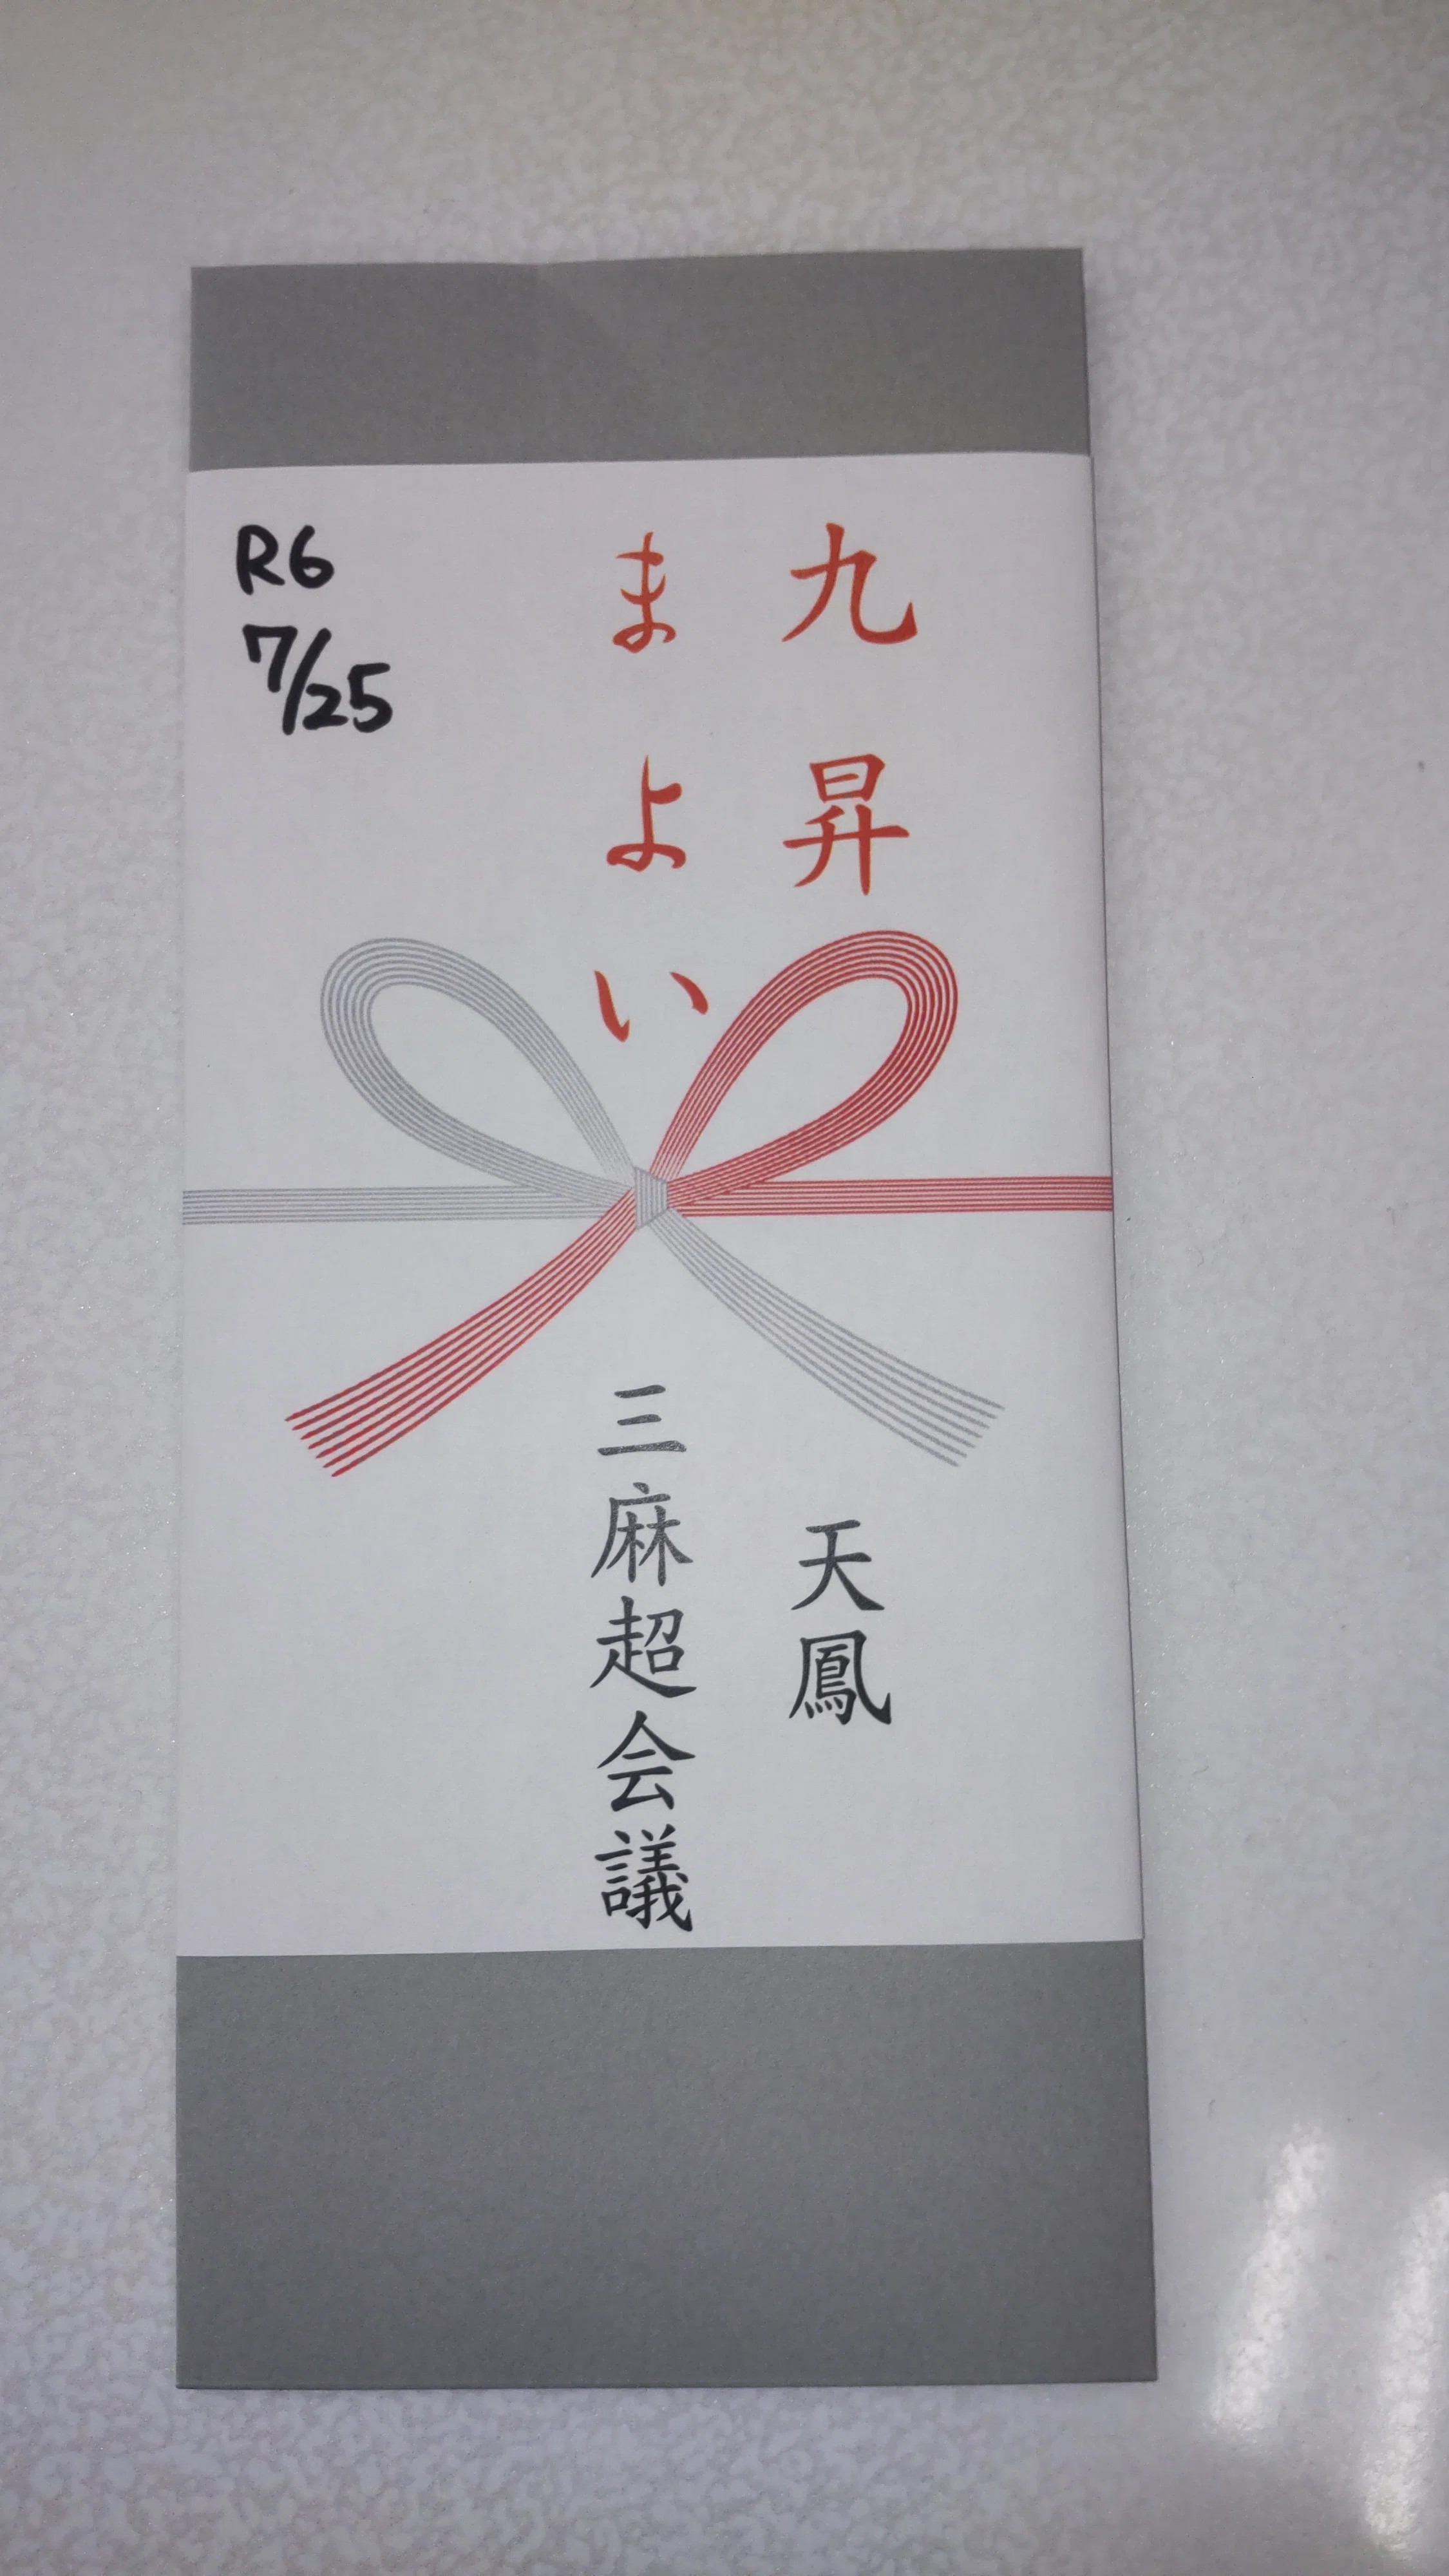 九昇
まよい
R6
7/25
天鳳
三麻超会議